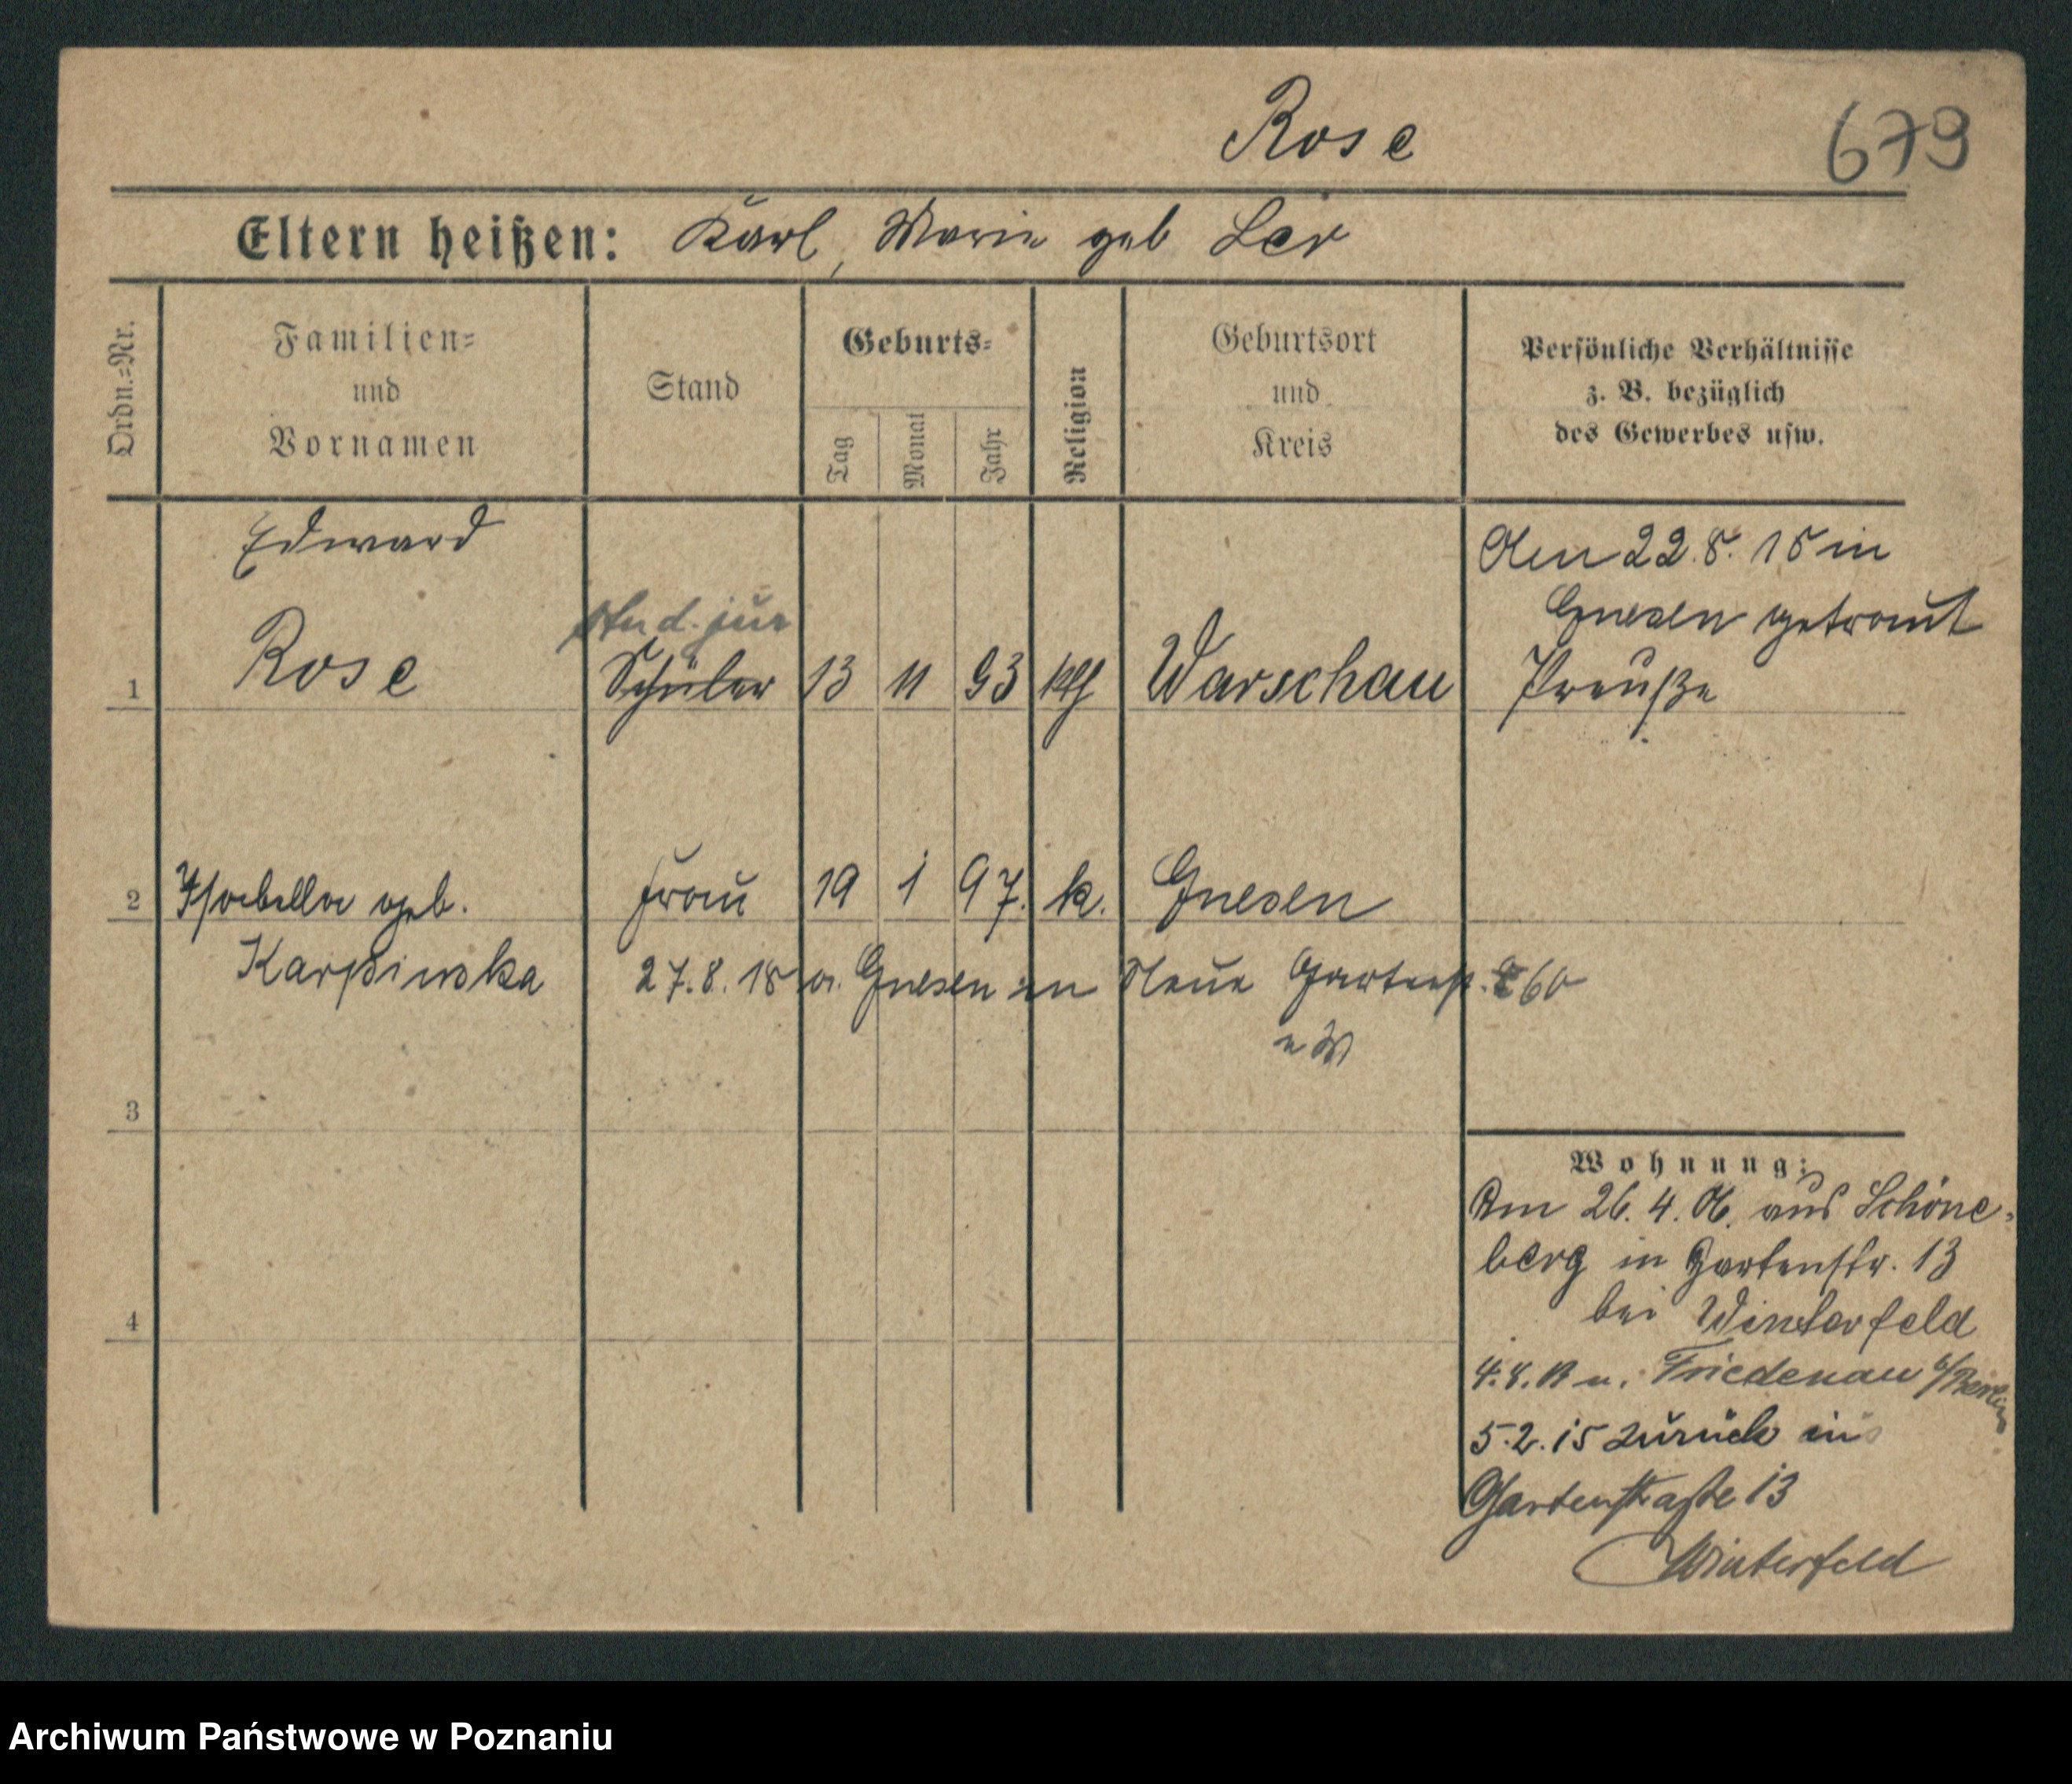 Rose
679
Eltern heißen: Karl, Marie geb Ler
Ordn.=Nr.
Familien=
und
Vornamen
Stand
Geburts=
Tag
Monat
Jahr
Religion
Geburtsort
und
Kreis
Persönliche Verhältnisse
z. B. bezüglich
des Gewerbes usw.
Edward
stud. jur
1 Rose Schüler 13 11 93 kth Warschau
Den 22.8. 18 in
Gnesen getraut
Preuße
2 Isabella geb. Frau 19 1 97. k. Gnesen
Karpinska 27.8.18 a. Gnesen in Neue Gartenstr. 60
3
4
Wohnung:
Am 26. 4. 06. aus Schöne-
berg in Gartenstr. 13
bei Winterfeld
n. Friedenau b/Berlin
5.2.15 zurück in
Gartenstraße 13
Winterfeld
Archiwum Państwowe w Poznaniu